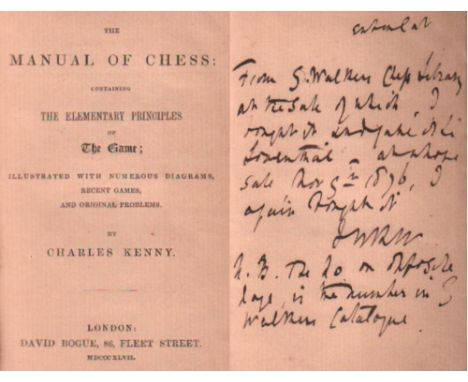 THE
MANUAL OF CHESS:
CONTAINING
THE ELEMENTARY PRINCIPLES
OF
The Game;
ILLUSTRATED WITH NUMEROUS DIAGRAMS,
RECENT GAMES,
AND ORIGINAL PROBLEMS.
BY
CHARLES KENNY.
LONDON:
DAVID BOGUE, 86, FLEET STREET.
MDCCCXLVII.
From G. Walkers Chess Library
at the Sale of which, I
bought it and gave it to
Lowenthal at whose
Sale Nov 5th 1876, I
again bought it
N. B. The No. on opposite
page, is the number in G
Walkers Catalogue.